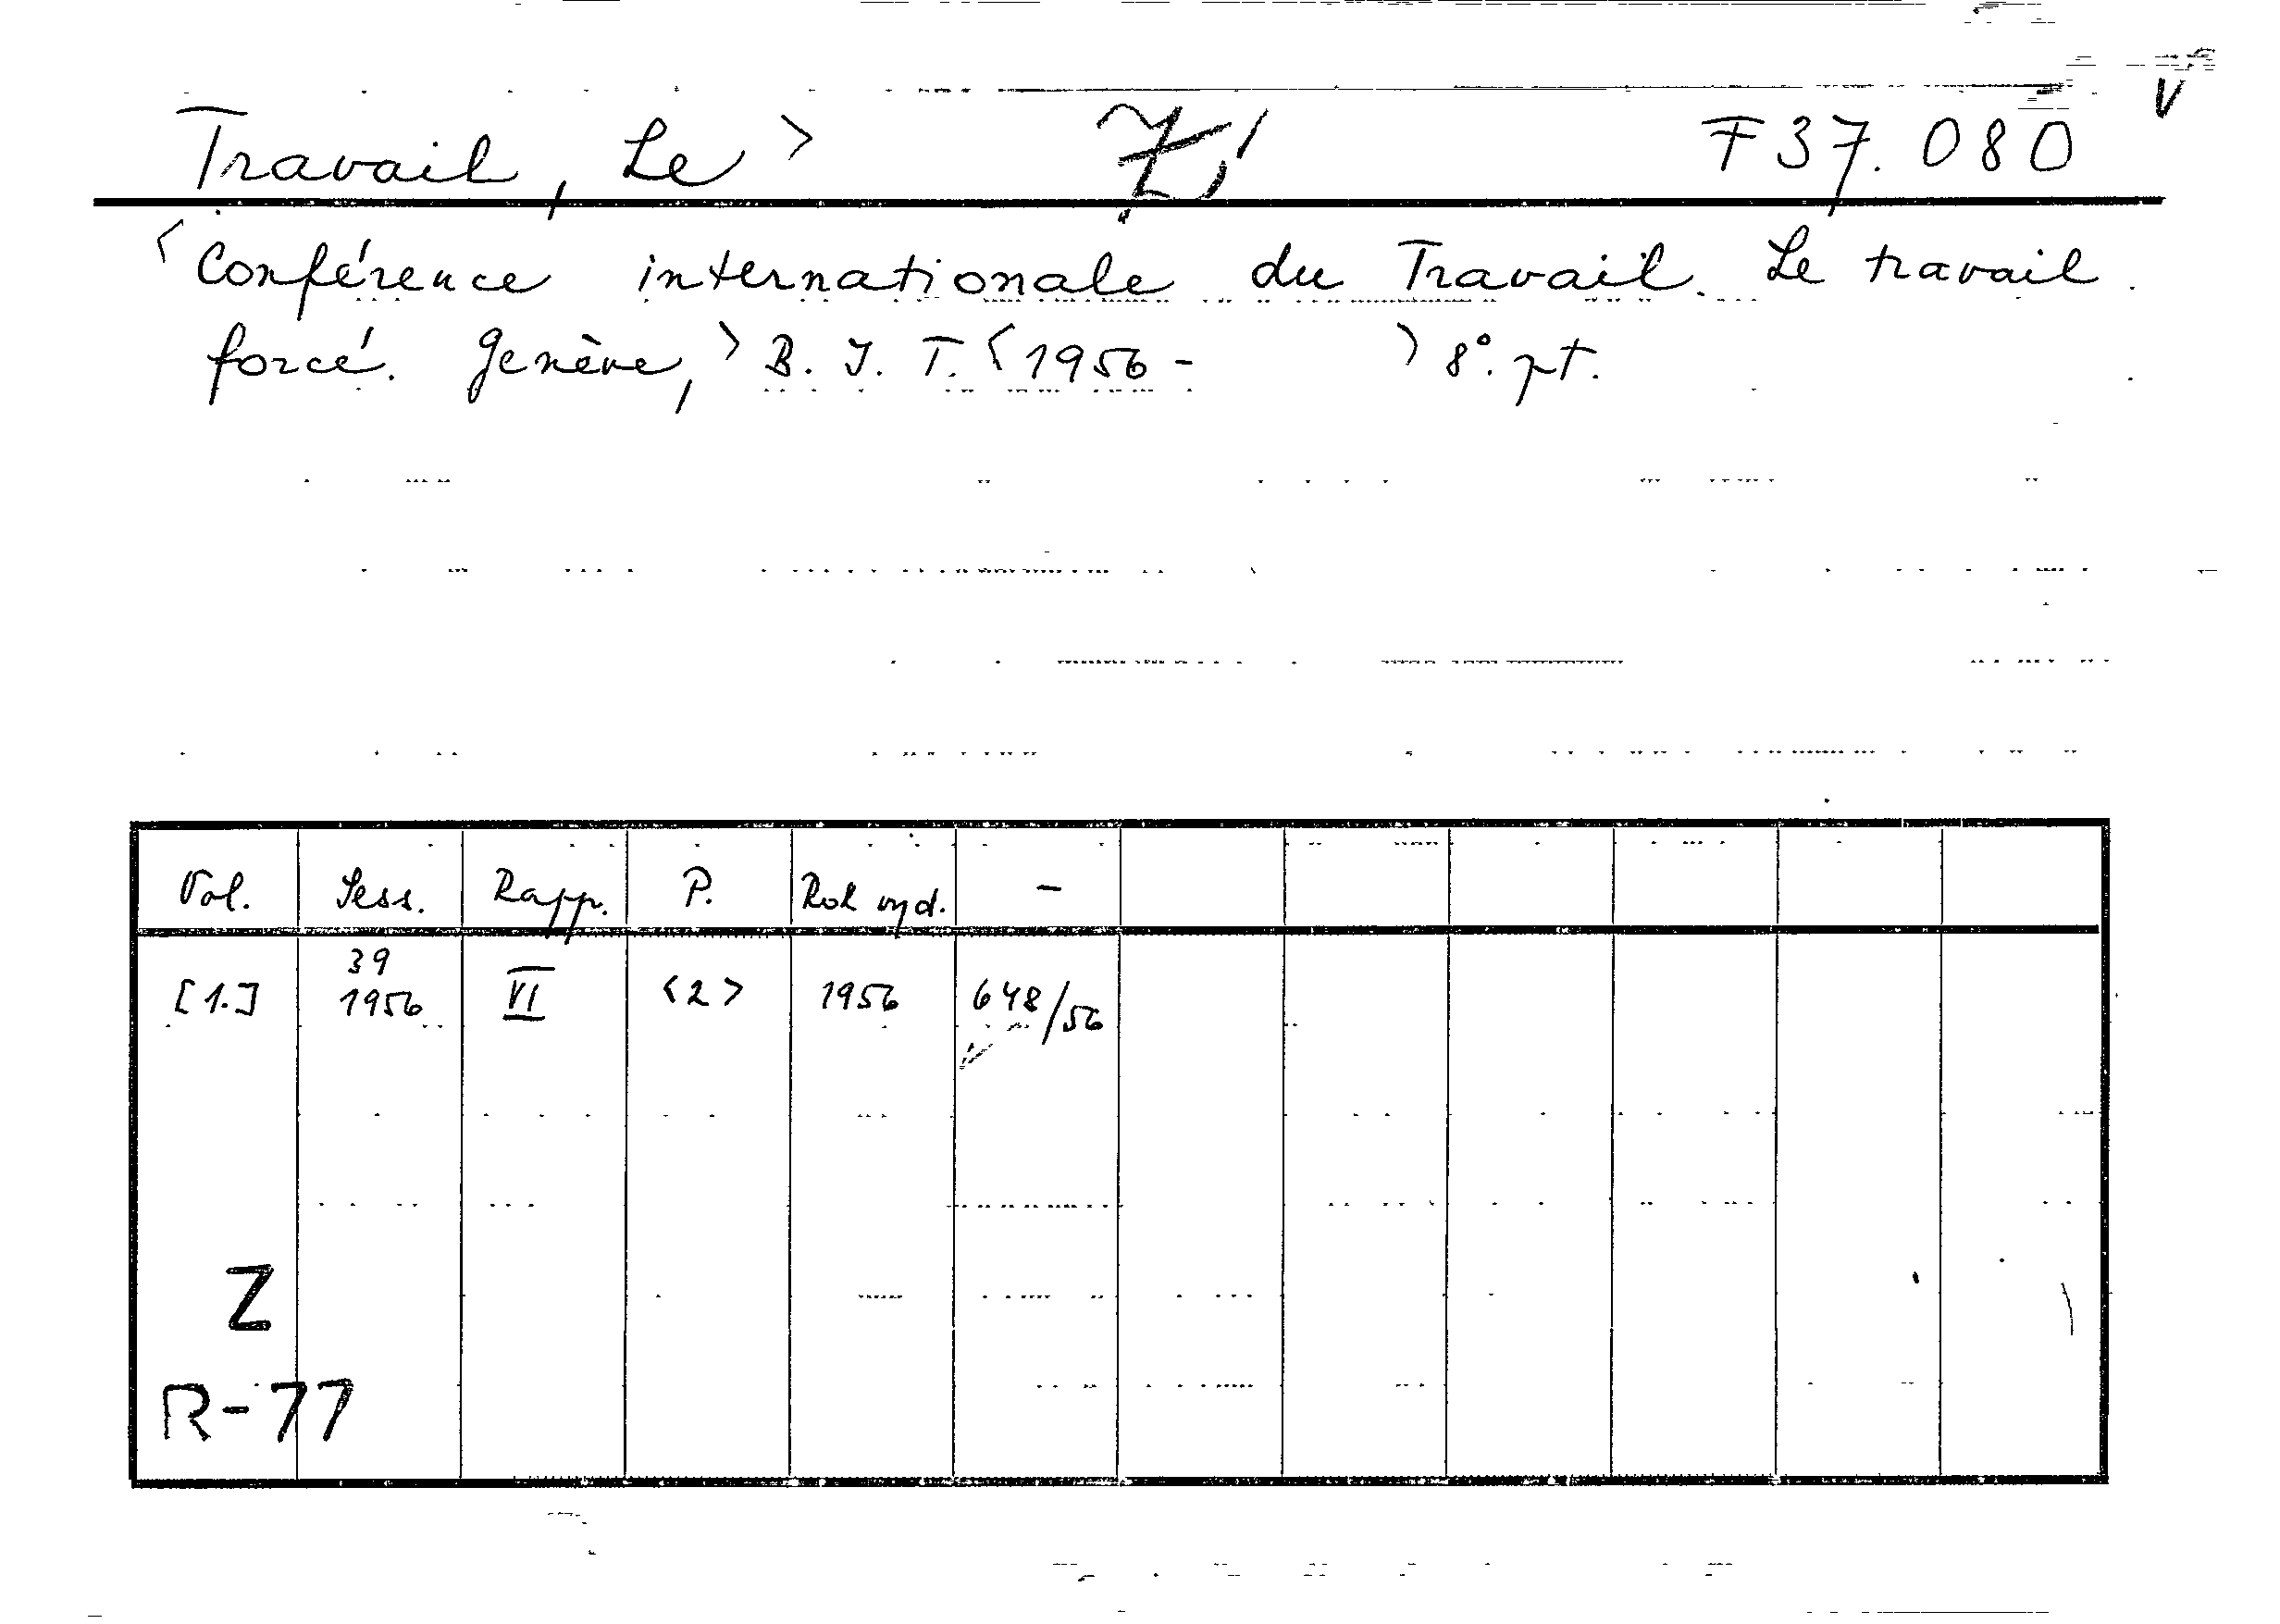 Travail, Le > Z, F 37.080 V
<Conférence internationale du Travail. Le travail
forcé. Genève,> B. I. T. <1956 - > 8°. pt.
Vol. Sess. Rapp. P. Rok vyd. -
39
[1.] 1956 VI <2> 1956 648/56
Z
R-77